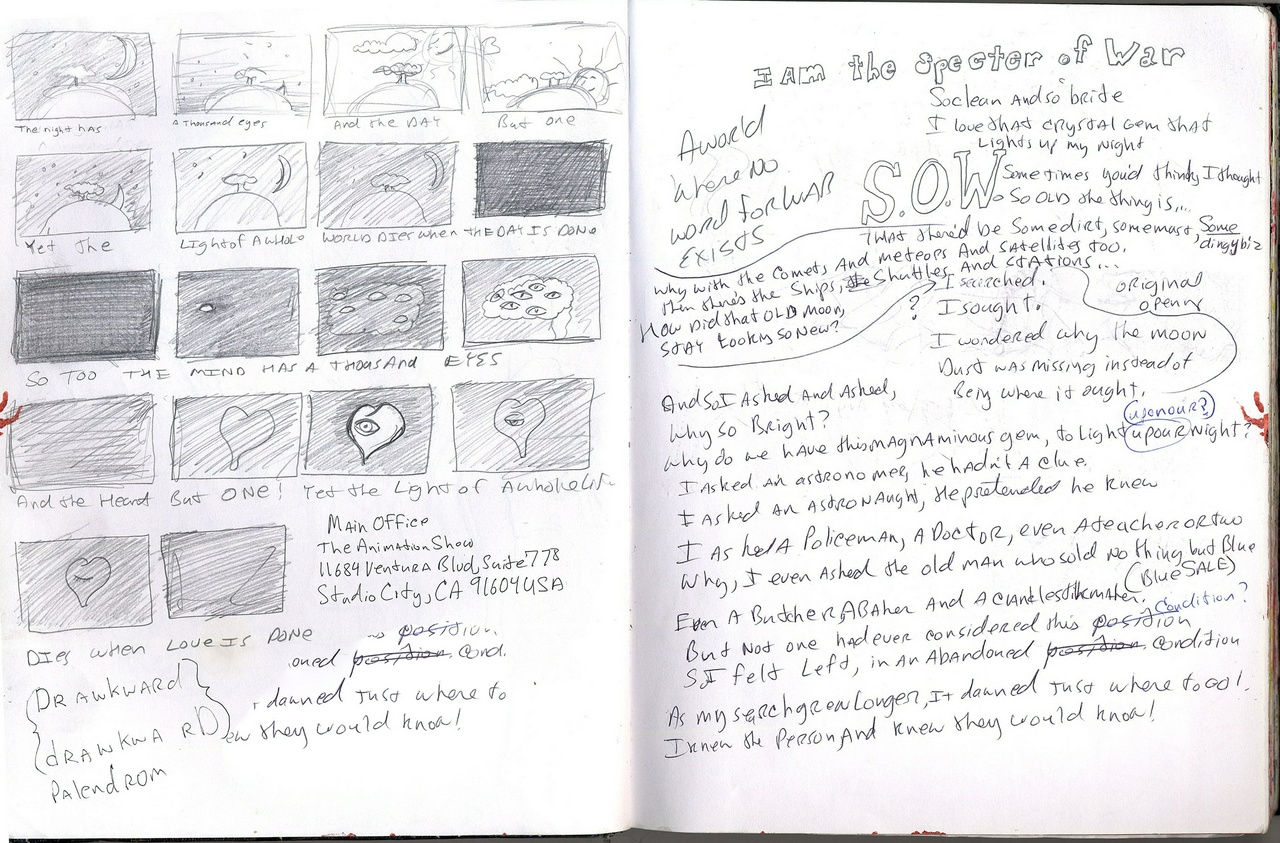 The night has
A Thousand eyes
And the DAY
But one
Yet the
Light of A whole
WORLD DIES when the DAY IS DONE
SO TOO THE MIND HAS A THOUSAND EYES
And the Heart But ONE! Yet the Light of A whole Life
DIES when LOVE IS DONE
Main Office
The Animation Show
11684 Ventura Blvd, Suite 778
Studio City, CA 91604 USA
position.
ioned position cond.
t dawned Just where to
ew they would know!
DRAWKWARD
dRAWKWARD
PAlendROM
I AM the Specter of War
A world
where no
word for WAR
EXISTS
S.O.W.
So clean And so brite
I love that crystal Gem that
Lights up my Night
Sometimes you'd think, I thought
So OLD the thing is,...
THAT there'd be Some dirt, some mast, Some
dingybiz
why with the Comets And meteors And satellites too.
then there's the Ships, the Shuttles And stAtions...
How Did that OLD Moon,
STAY Looking So New?
?
I searched.
I sought.
I wondered why the moon
Dust was missing instead of
Being where it ought.
original
openng
And So I Asked And Asked,
Why So Bright?
Why do we have this mAgnAminous gem, to Light up our Night?
uponour?
I Asked An astronomer, he hadn't A clue.
I Asked An AstroNAught, He pretended he knew
I Asked A Policeman, A Doctor, even A teacher or two
Why, I even Asked the old man who sold nothing but Blue
(Blue SALE)
Even A Butcher, A Baker And A candlestikmaker.
But Not one had ever considered this position
Condition?
S I felt Left, in An Abandoned position condition
As my search grew Longer, It dawned Just where to GO!.
I knew the Person And knew they would know!